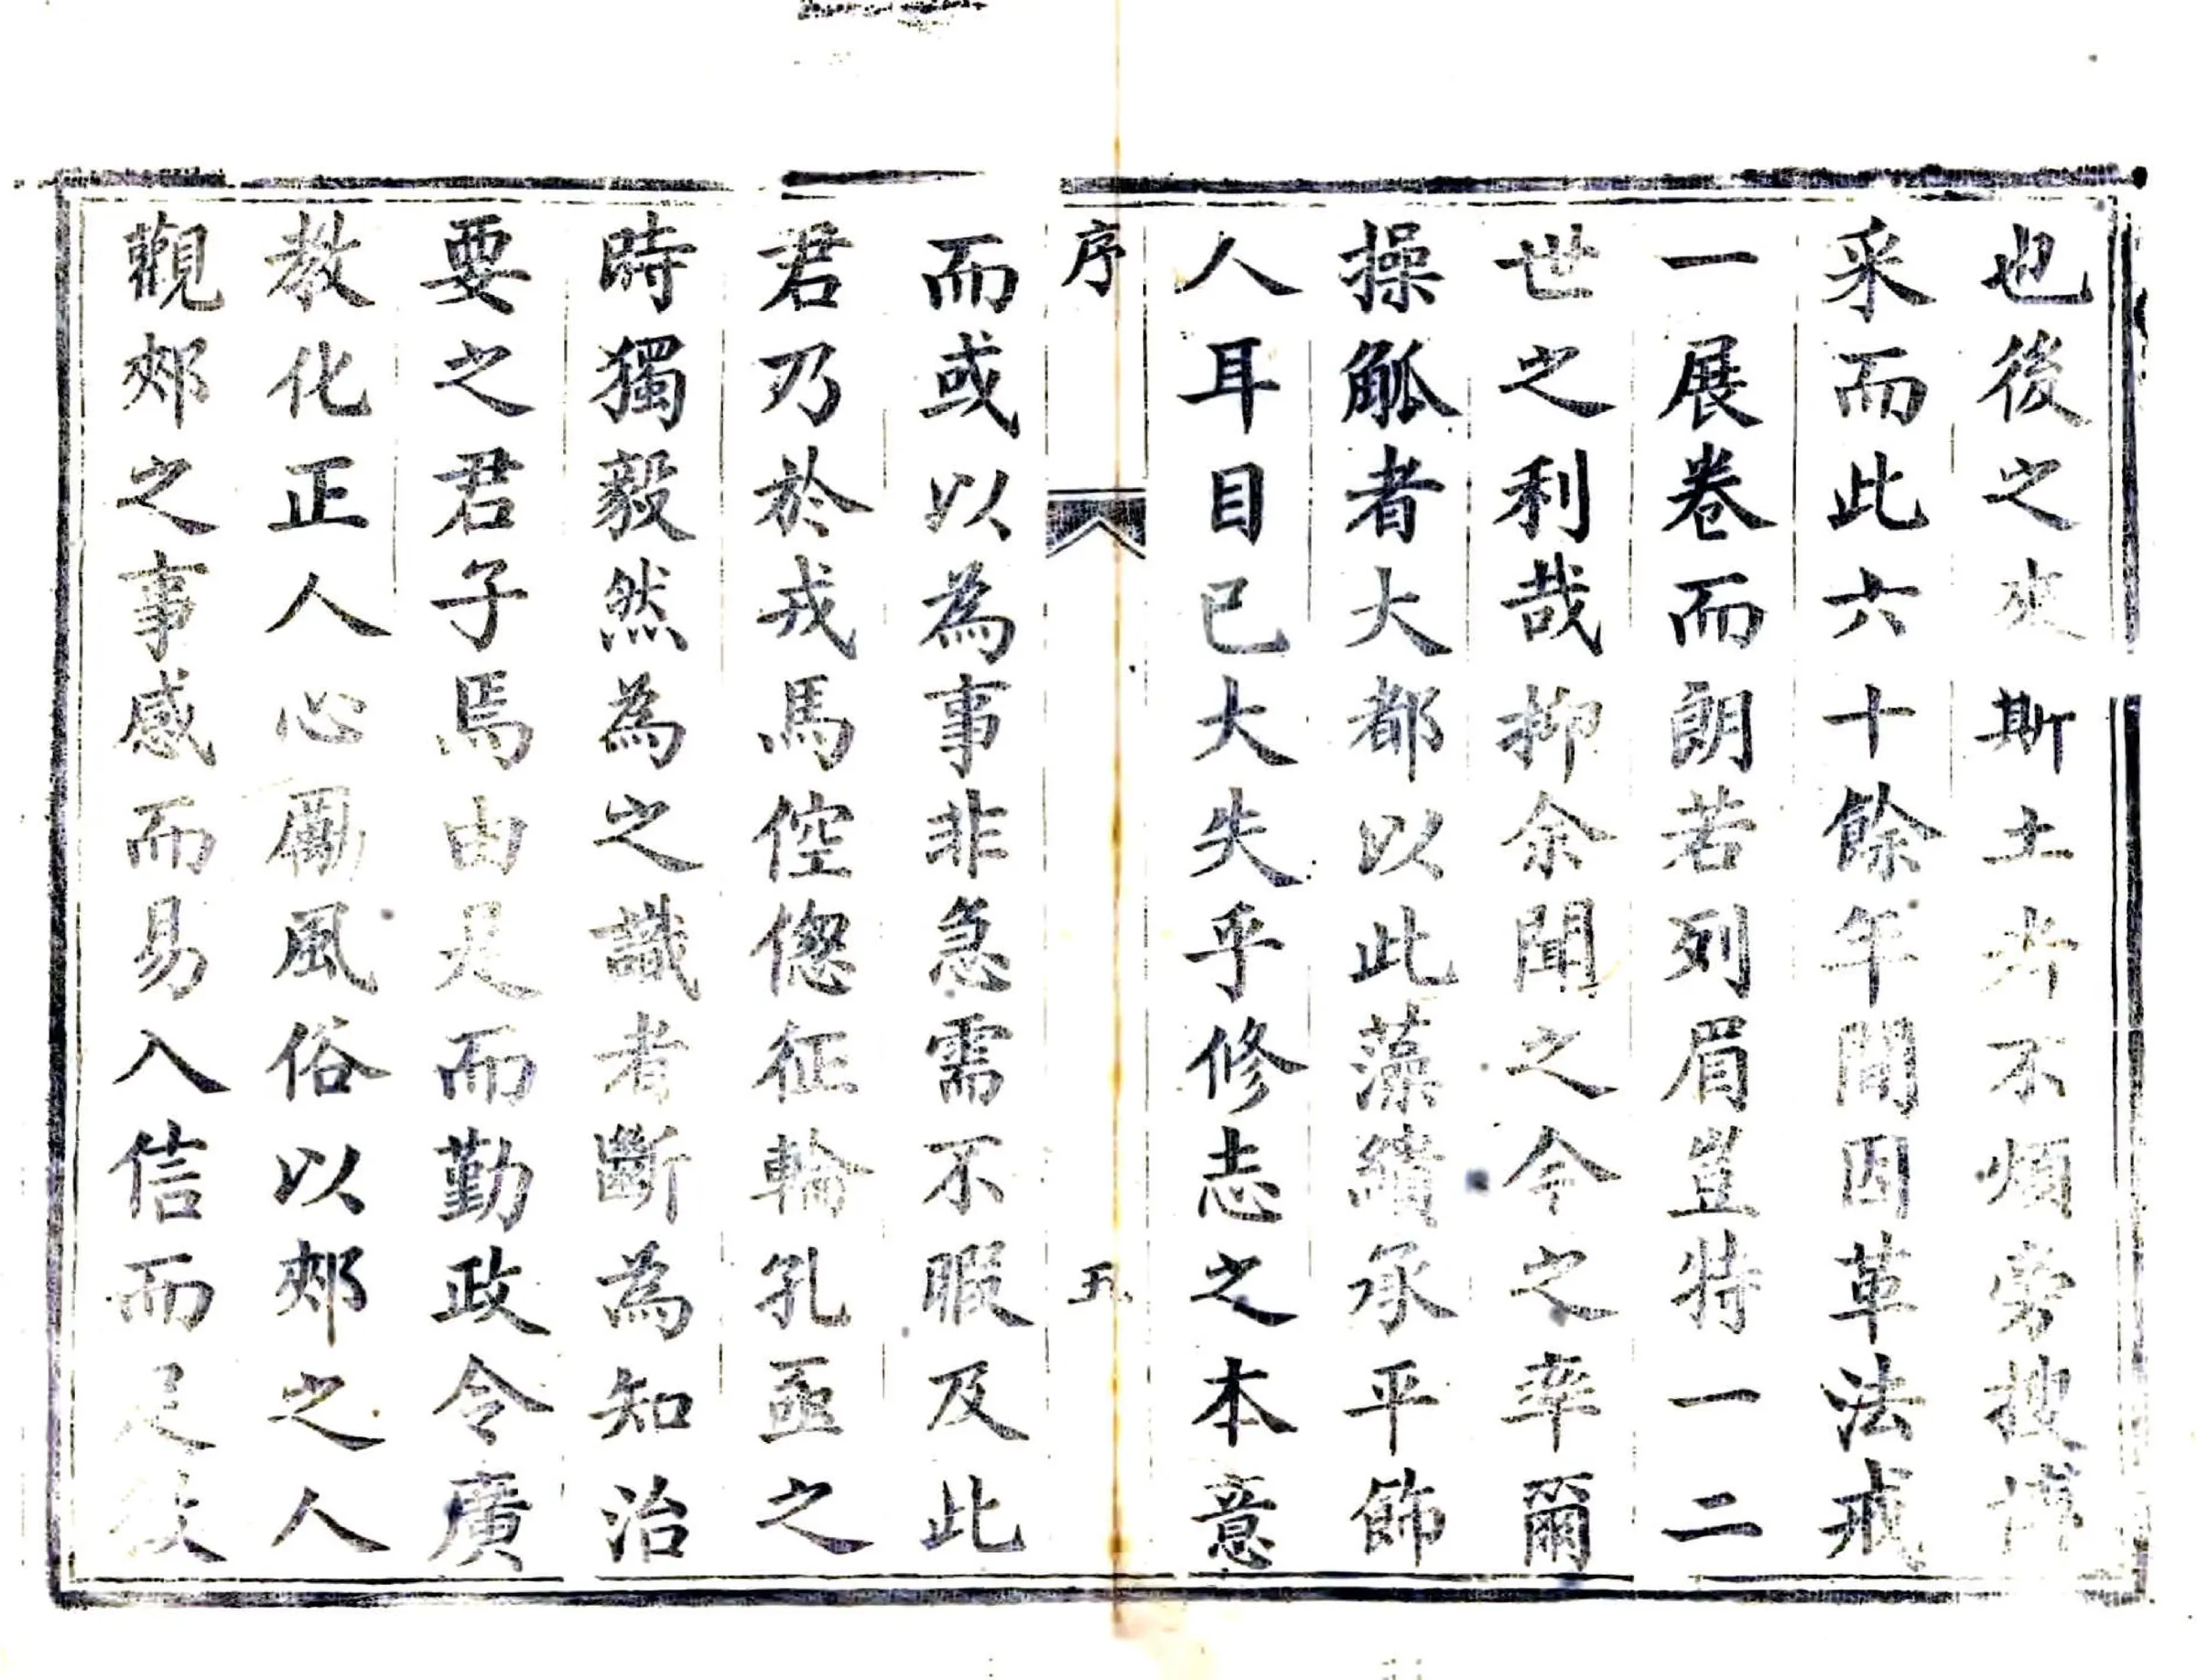 也後之來斯土者不煩旁搜博
采而此六十餘年間因革法戒
一展卷而朗若列眉豈特一二
世之利哉抑余聞之今之率爾
操觚者大都以此藻繢承平飾
人耳目已大失乎修志之本意
序
五
而或以為事非急需不暇及此
君乃於戎馬倥偬征輪孔亟之
時獨毅然為之識者斷為知治
要之君子焉由是而勤政令廣
教化正人心勵風俗以郟之人
觀郟之事感而易入信而足徵